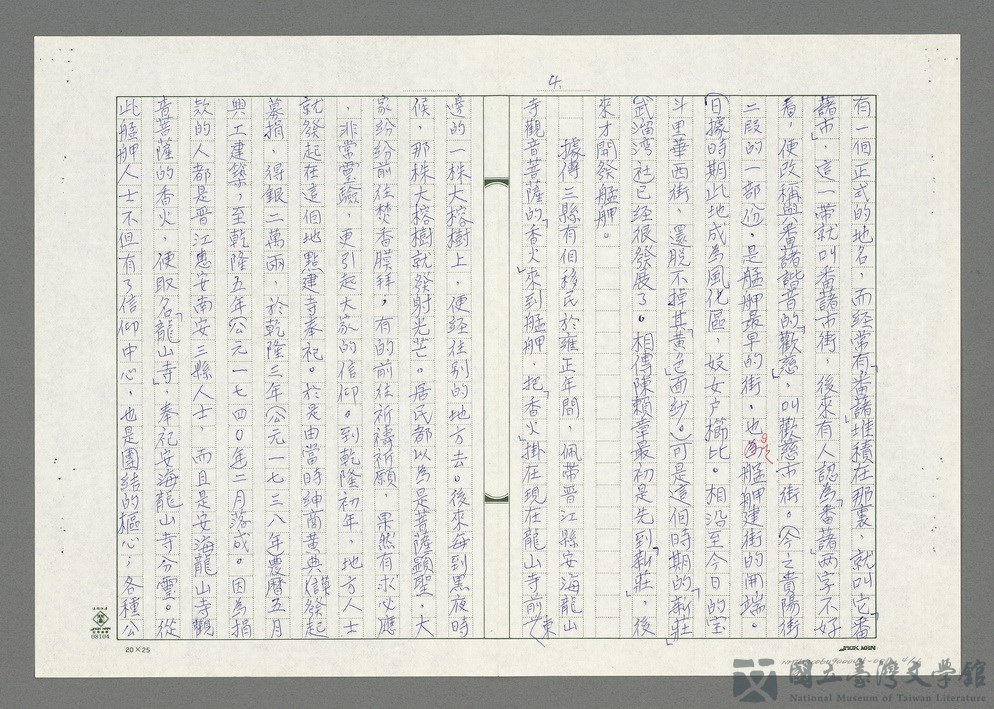 4.
有一個正式的地名，而經常有「番藷」堆積在那裏，就叫它「番
藷市」，這一帶就叫番藷市街，後來有人認為「番藷」兩字不好
看，便改稱與番藷諧音的「歡慈」，叫歡慈市街。（今之貴陽街
二段的一部份），是艋舺最早的街，也是艋舺建街的開端。
（日據時期此地成為風化區，妓女户櫛比。相沿至今日的宝
斗里華西街，還脱不掉其「黃色」面紗。）可是這個時期的「新莊」
（武𰛄湾社）已經很發展了。相傳陳賴章最初是先到「新莊」，後
來才開發艋舺。
據傳三縣有個移民於雍正年間，佩帶晋江縣安海龍山
寺觀音菩薩的「香火」來到艋舺，把「香火」掛在現在龍山寺前（東
邊的一株大榕樹上，便經往別的地方去。後來每到黑夜時
候，那株大榕樹就發射光芒。居民都以為是菩薩顯聖，大
家紛紛前往焚香膜拜，有的前往祈禱祈願，果然有求必應
，非常靈驗，更引起大家的信仰。到乾隆初年，地方人士
就發起在這個地點建寺奉祀。於是由當時紳商黃典謨發起
募捐，得銀二萬兩，於乾隆三年（公元一七三八年）農曆五月
興工建築，至乾隆五年（公元一七四０年）二月落成。因為捐
款的人都是晋江惠安南安三縣人士，而且是安海龍山寺觀
音菩薩的香火，便取名「龍山寺」，奉祀安海龍山寺分靈。從
此艋舺人士不但有了信仰中心，也是團結的樞心，各種公
JACK MAN
08104
20×25
國立臺灣文學館
National Museum of Taiwan Literature